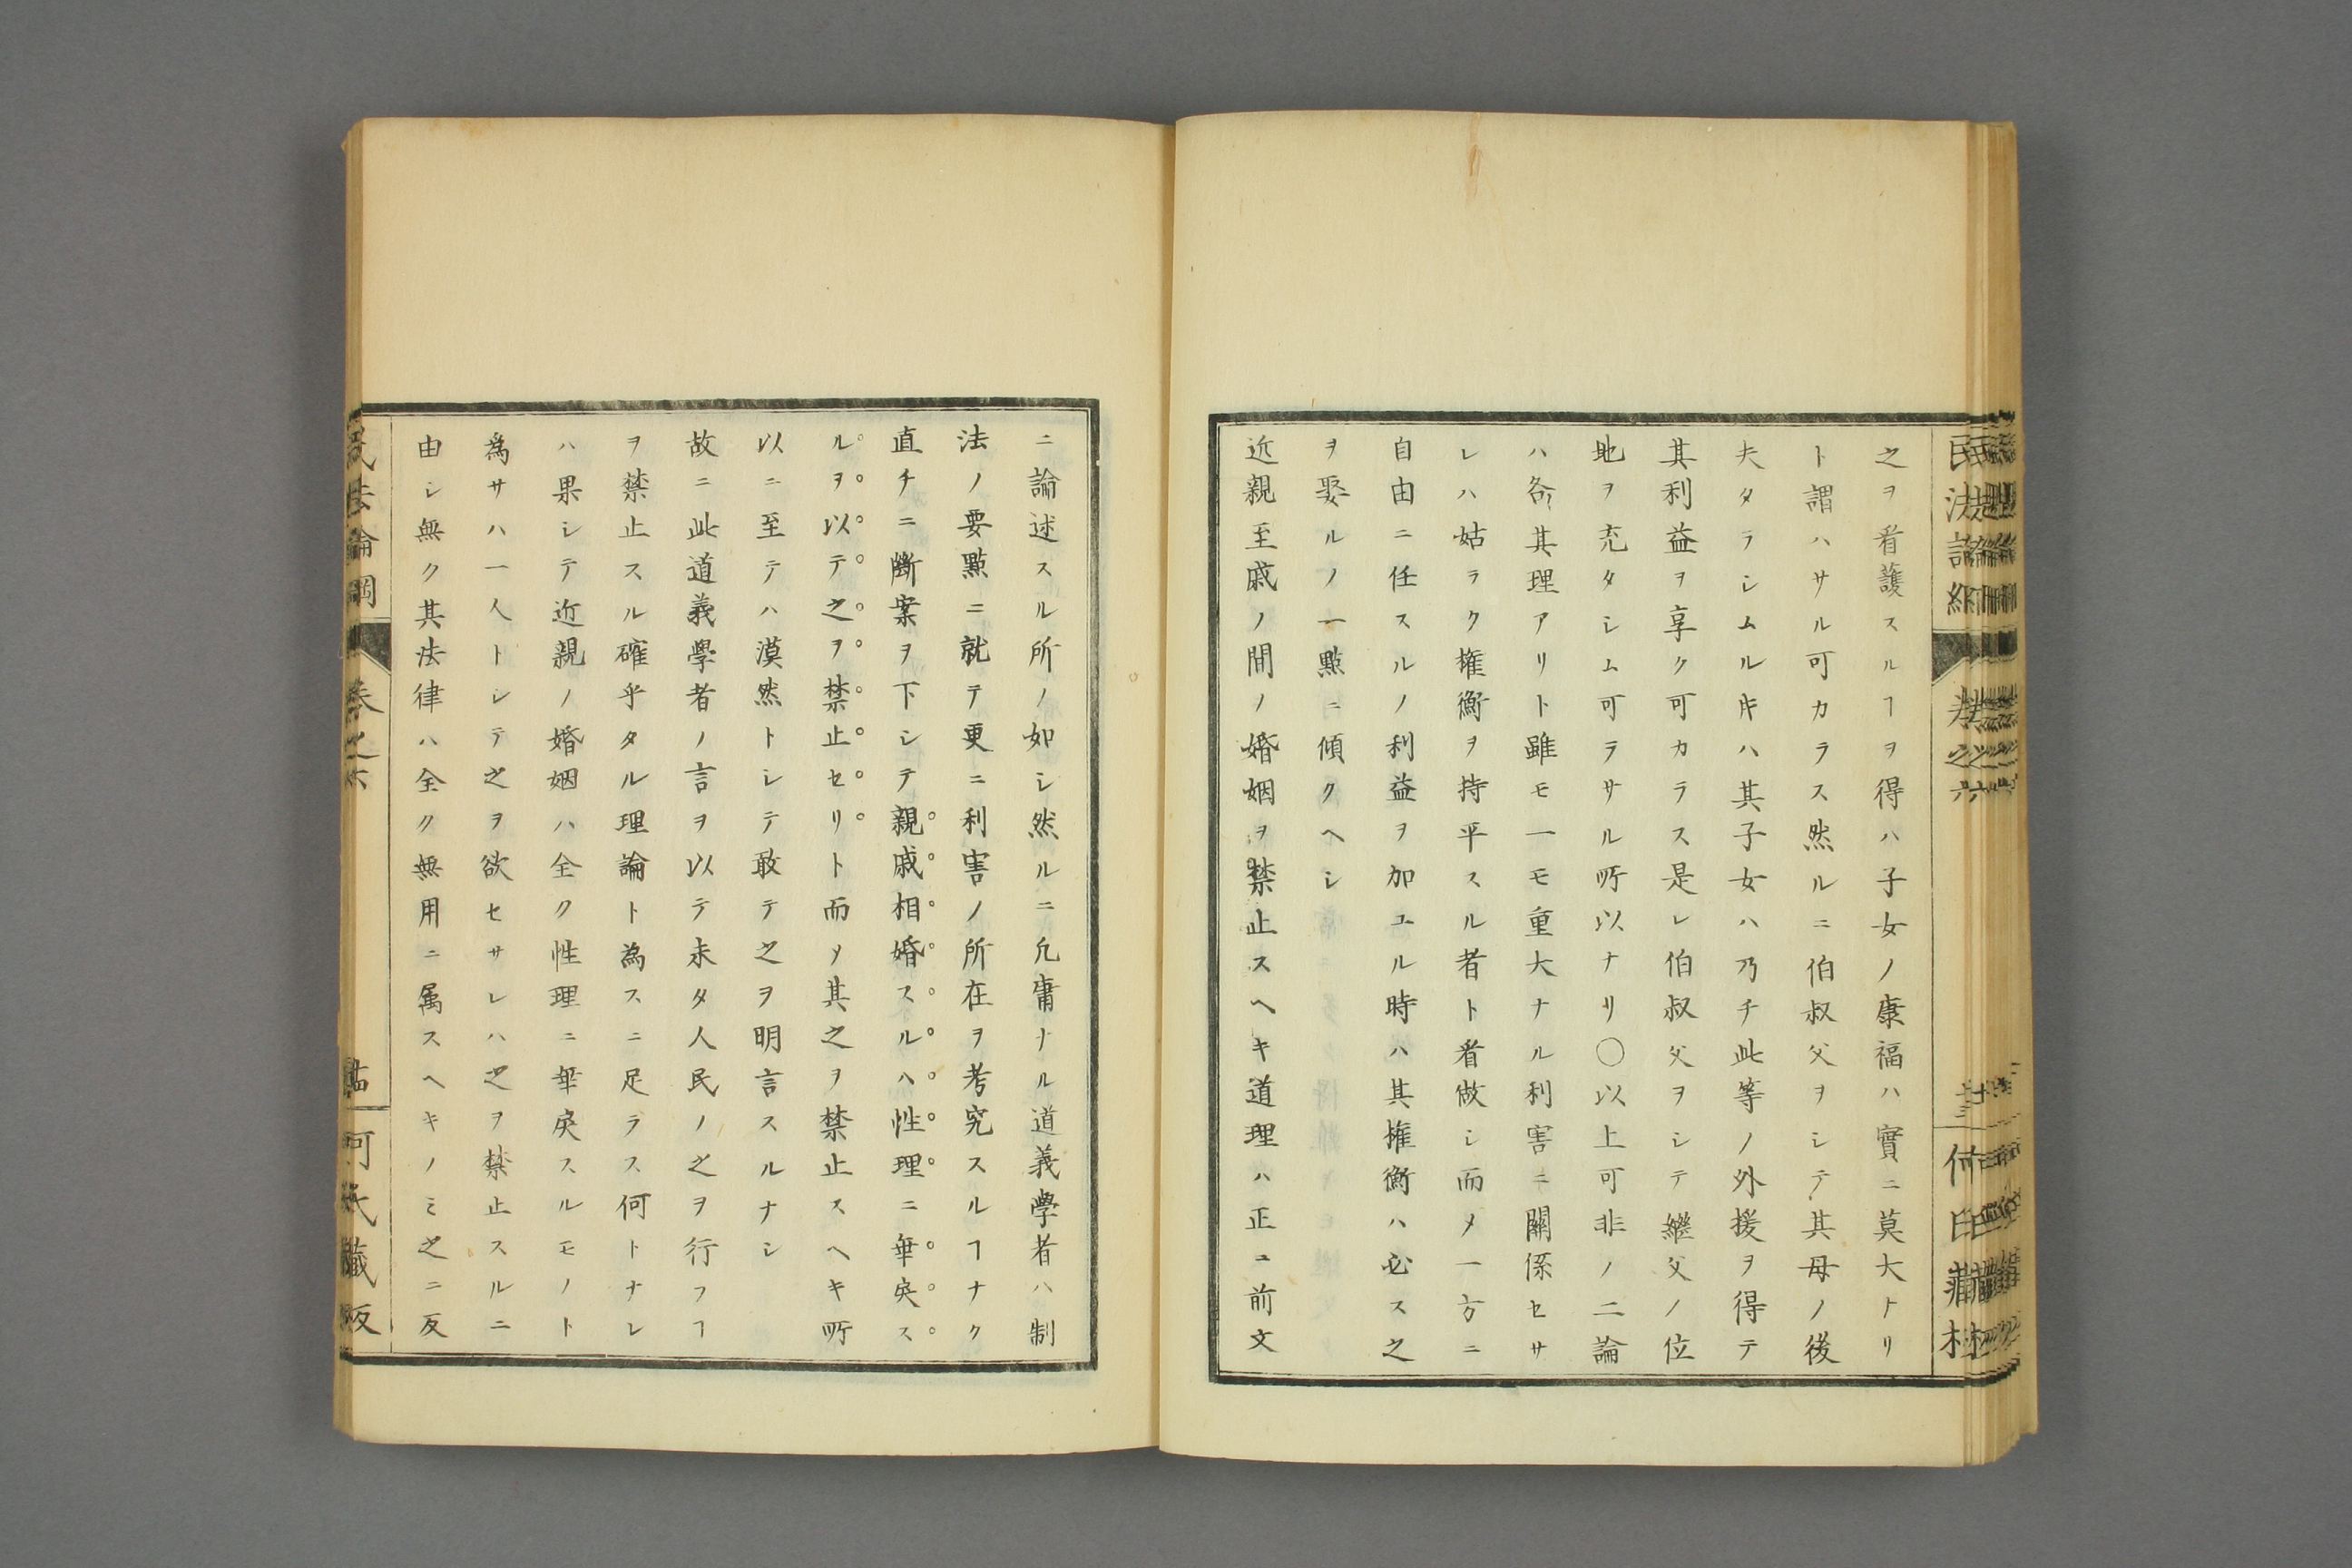 之ヲ看護スルヿヲ得ハ子女ノ康福ハ實ニ莫大ナリ
ト謂ハサル可カラス然ルニ伯叔父ヲシテ其母ノ後
夫タラシムル𪜈ハ其子女ハ乃チ此等ノ外援ヲ得テ
其利益ヲ享ク可カラス是レ伯叔父ヲシテ繼父ノ位
地ヲ充タシム可ラサル所以ナリ〇以上可非ノ二論
ハ各〻其理アリト雖モ一モ重大ナル利害ニ關係セサ
レハ姑ラク權衡ヲ持平スル者ト看做シ而メ一方ニ
自由ニ任スルノ利益ヲ加ユル時ハ其權衡ハ必ス之
ヲ娶ルノ一點ニ傾クヘシ
近親至戚ノ間ノ婚姻ヲ禁止スヘキ道理ハ正ニ前文
ニ論述スル所ノ如シ然ルニ凢庸ナル道義學者ハ制
法ノ要點ニ就テ更ニ利害ノ所在ヲ考究スルヿナク
直チニ斷案ヲ下シテ親戚相婚スルハ性理ニ乖戾ス
ルヲ以テ之ヲ禁止セリト而メ其之ヲ禁止スヘキ所
以ニ至テハ漠然トシテ敢テ之ヲ明言スルナシ
故ニ此道義學者ノ言ヲ以テ未タ人民ノ之ヲ行フヿ
ヲ禁止スル確乎タル理論ト為スニ足ラス何トナレ
ハ果シテ近親ノ婚姻ハ全ク性理ニ乖戾スルモノト
為サハ一人トシテ之ヲ欲セサレハ之ヲ禁止スルニ
由シ無ク其法律ハ全ク無用ニ属スヘキノミ之ニ反
民法論綱
卷之六
何氏藏版